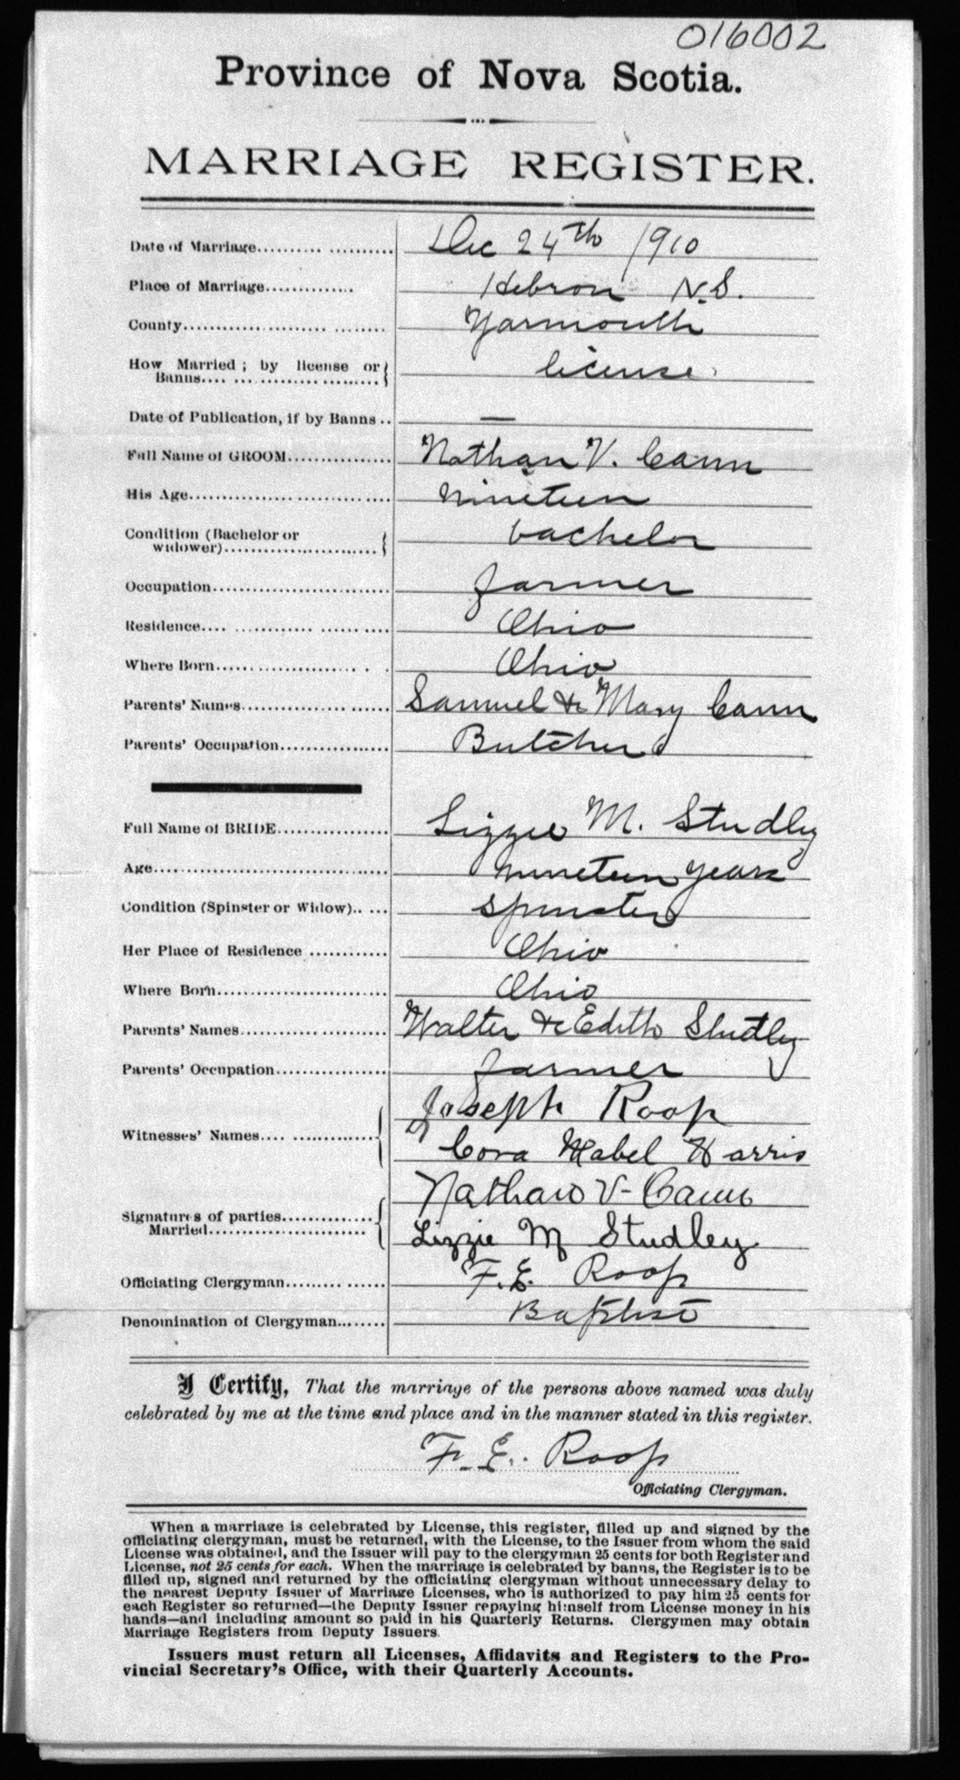 016002
Province of Nova Scotia.
MARRIAGE REGISTER.
Date of Marriage.................... Dec 24th 1910
Place of Marriage............. Hebron N.S.
County............................... Yarmouth
How Married ; by license or
Banns............................ license
Date of Publication, if by Banns .. —
Full Name of GROOM................ Nathan V. Cann
His Age............................... Nineteen
Condition (Bachelor or
widower)......................... bachelor
Occupation........................... farmer
Residence........................... Ohio
Where Born......................... Ohio
Parents' Names..................... Samuel & Mary Cann
Parents' Occupation................ Butcher
Full Name of BRIDE................. Lizzie M. Studley
Age................................... nineteen years
Condition (Spinster or Widow)...... spinster
Her Place of Residence ............ Ohio
Where Born......................... Ohio
Parents' Names..................... Walter & Edith Studley
Parents' Occupation................ farmer
Joseph Roop
Witnesses' Names.................
Cora Mabel Harris
Nathan V- Cann
Signatures of parties..............
Married.......................
Lizzie M Studley
Officiating Clergyman.............. F. E. Roop
Denomination of Clergyman....... Baptist
I Certify, That the marriage of the persons above named was duly
celebrated by me at the time and place and in the manner stated in this register.
F. E. Roop
Officiating Clergyman.
When a marriage is celebrated by License, this register, filled up and signed by the
officiating clergyman, must be returned, with the License, to the Issuer from whom the said
License was obtained, and the Issuer will pay to the clergyman 25 cents for both Register and
License, not 25 cents for each. When the marriage is celebrated by banns, the Register is to be
filled up, signed and returned by the officiating clergyman without unnecessary delay to
the nearest Deputy Issuer of Marriage Licenses, who is authorized to pay him 25 cents for
each Register so returned—the Deputy Issuer repaying himself from License money in his
hands—and including amount so paid in his Quarterly Returns. Clergymen may obtain
Marriage Registers from Deputy Issuers.
Issuers must return all Licenses, Affidavits and Registers to the Pro-
vincial Secretary's Office, with their Quarterly Accounts.